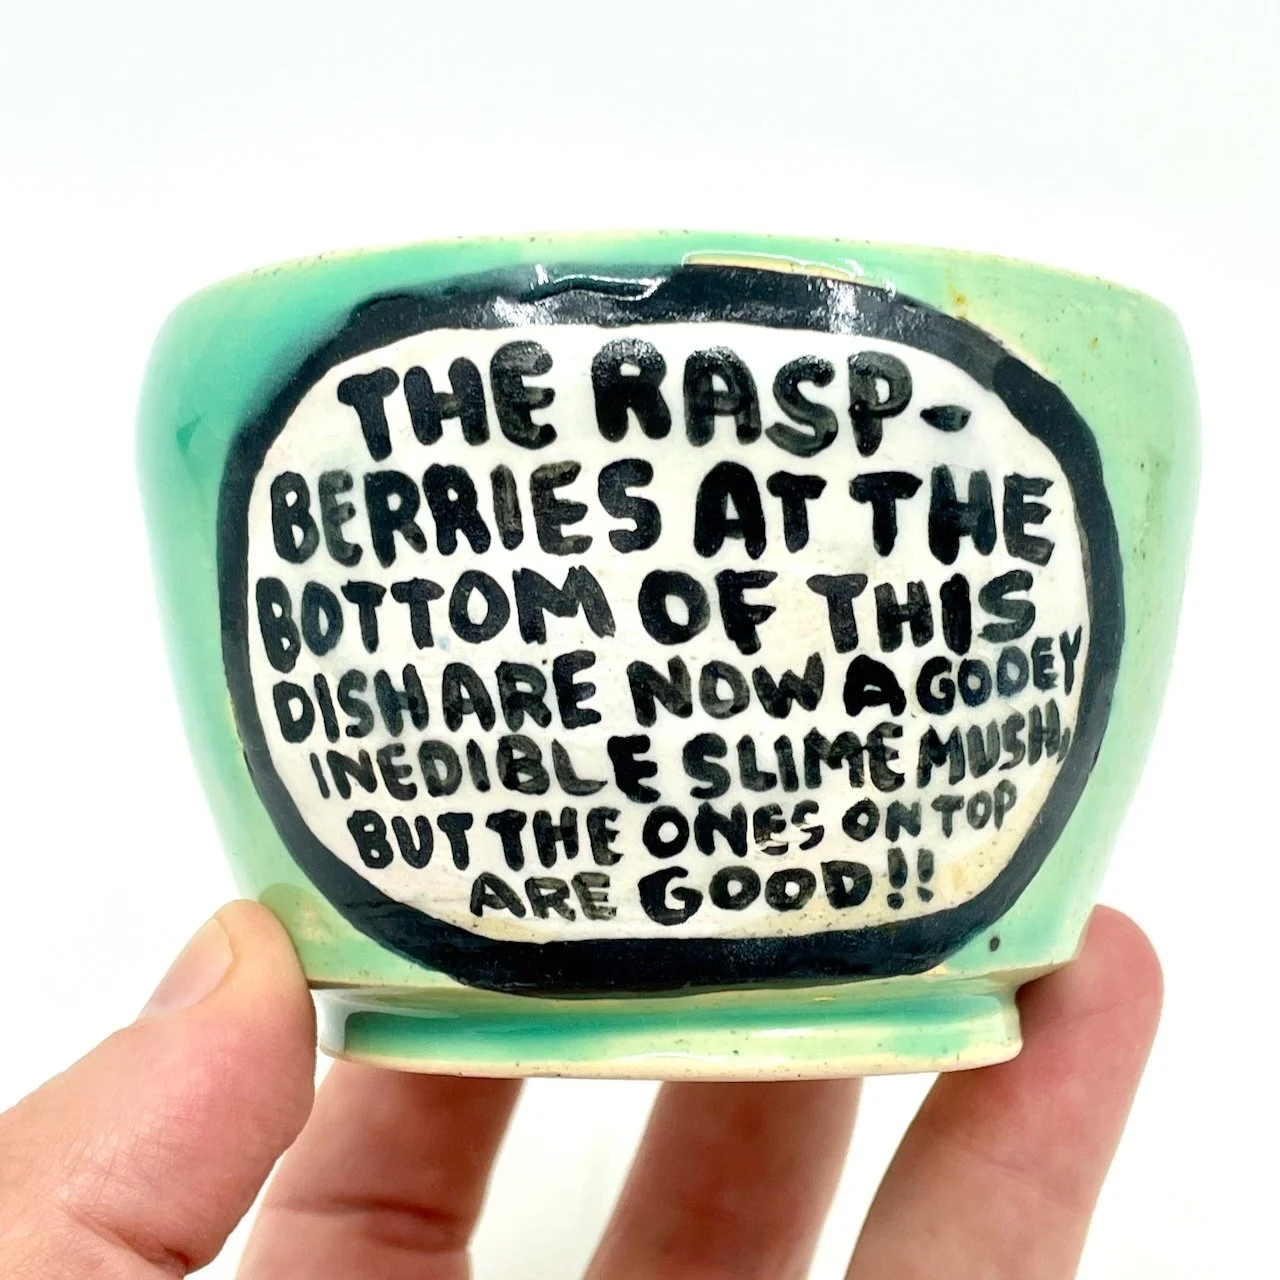 THE RASP-
BERRIES AT THE
BOTTOM OF THIS
DISH ARE NOW A GOOEY
INEDIBLE SLIME MUSH,
BUT THE ONES ON TOP
ARE GOOD!!